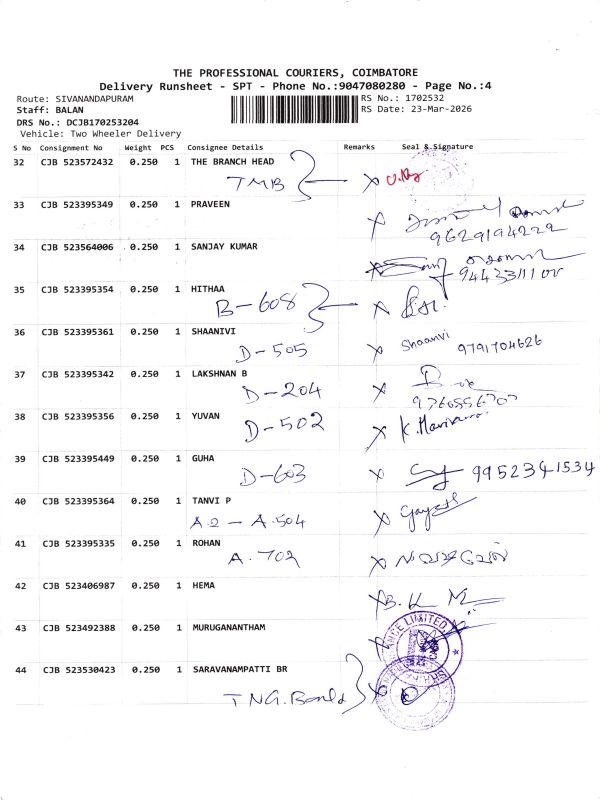 THE PROFESSIONAL COURIERS, COIMBATORE
Delivery Runsheet - SPT - Phone No.:9047080280 - Page No.:4
Route: SIVANANDAPURAM
RS No.: 1702532
Staff: BALAN
RS Date: 23-Mar-2026
DRS No.: DCJB170253204
Vehicle: Two Wheeler Delivery
S No Consignment No Weight PCS Consignee Details Remarks Seal & Signature
32 CJB 523572432 0.250 1 THE BRANCH HEAD
TMB
33 CJB 523395349 0.250 1 PRAVEEN
9629194222
34 CJB 523564006 0.250 1 SANJAY KUMAR
35 CJB 523395354 0.250 1 HITHAA
B-608
36 CJB 523395361 0.250 1 SHAANIVI
D-505 Shaanvi 9791704626
37 CJB 523395342 0.250 1 LAKSHNAN B
D-204
38 CJB 523395356 0.250 1 YUVAN
D-502
39 CJB 523395449 0.250 1 GUHA
D-603 9952341534
40 CJB 523395364 0.250 1 TANVI P
A.2 - A.504
41 CJB 523395335 1 ROHAN 0.250
A.702
42 CJB 523406987 0.250 1 HEMA
43 CJB 523492388 0.250 1 MURUGANANTHAM
44 CJB 523530423 0.250 1 SARAVANAMPATTI BR